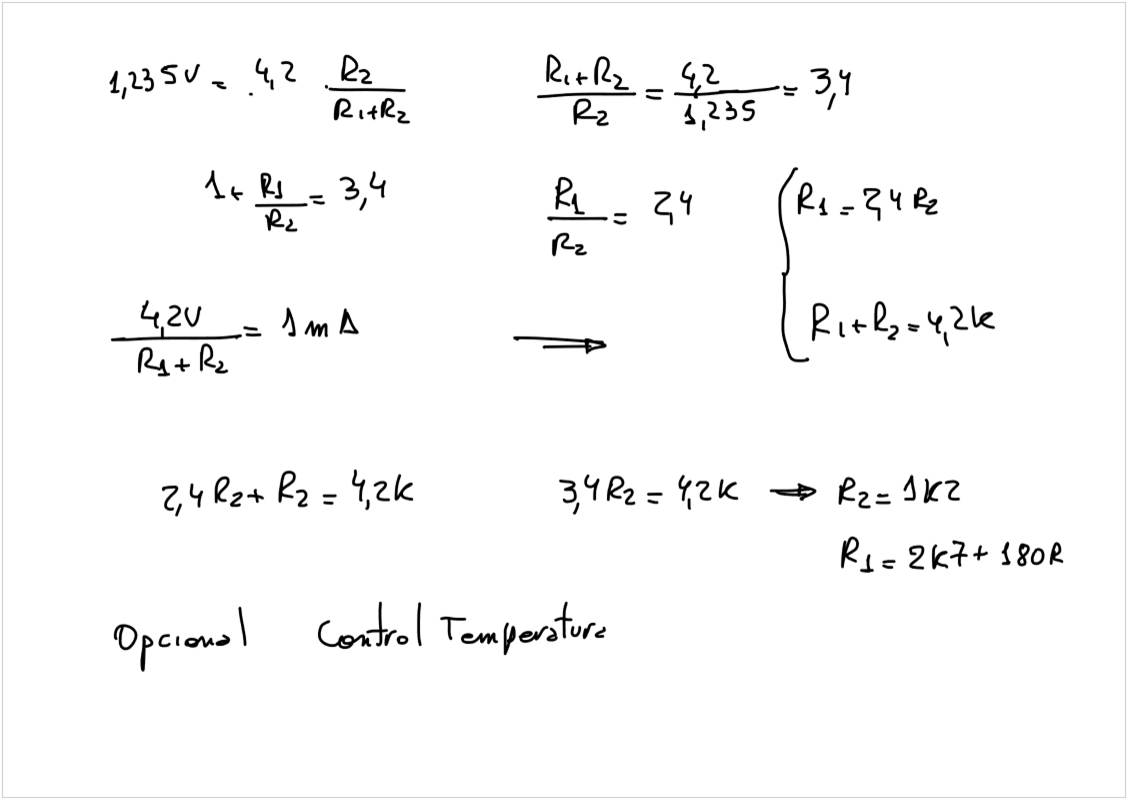 1,235V = 4,2 · R2/(R1+R2)    (R1+R2)/R2 = 4,2/1,235 = 3,4
1 + R1/R2 = 3,4    R1/R2 = 2,4    { R1 = 2,4 R2
4,2V/(R1+R2) = 1mA    ⟹    R1+R2 = 4,2k
2,4R2 + R2 = 4,2k    3,4R2 = 4,2k → R2 = 1k2
R1 = 2k7 + 180R
Opcional    Control Temperatura